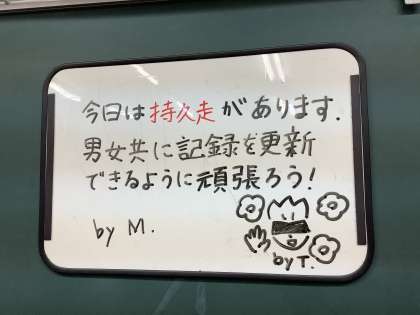 今日は持久走があります.
男女共に記録を更新
できるように頑張ろう!
by M.
by T.